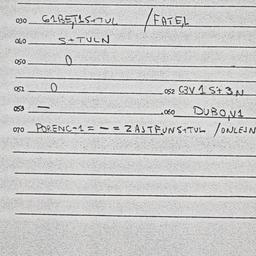 030 G1BET1S+TUL /FATEL
040 S+TULN
050 0
051 0 052 C3V1S+3N
053 — .060 DUBO,V1
070 PORENC-1 = - = 2AJTFUNS+TUL /ONLEIN